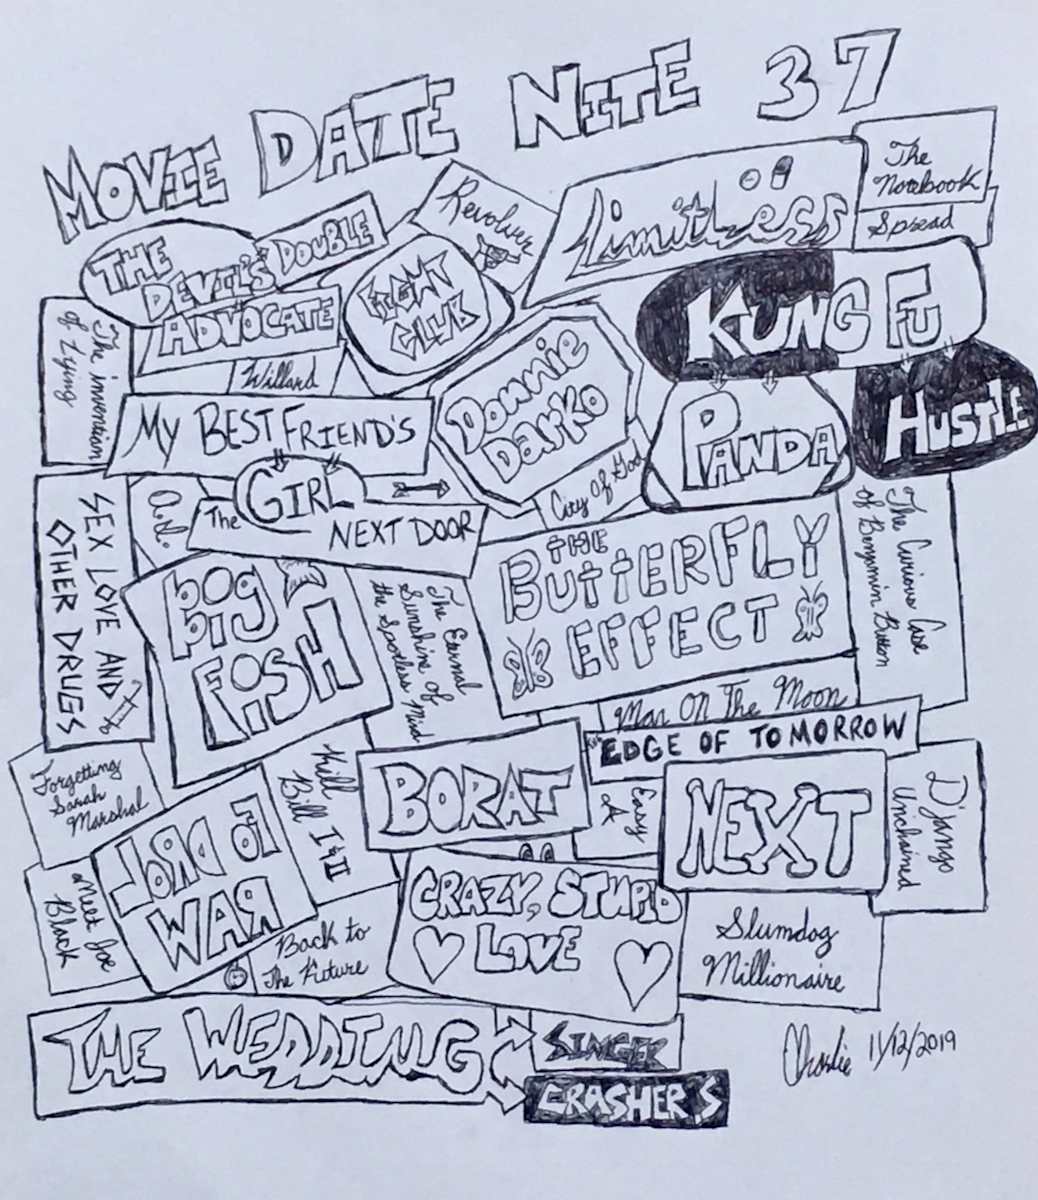 MOVIE DATE NITE 37
THE
DEVIL'S DOUBLE
ADVOCATE
Revolver
FIGHT
CLUB
Limitless
The
Notebook
Spread
The invention
of Lying
Willard
KUNG FU
PANDA
HUSTLE
Donnie
Darko
City Of God
MY BEST FRIEND'S
GIRL
The
NEXT DOOR
A.I.
SEX LOVE AND
OTHER DRUGS
BIG
FISH
The Eternal
Sunshine of
the Spotless Mind
THE
BUTTERFLY
EFFECT
The Curious Case
of Benjamin Button
Man On The Moon
EDGE OF TOMORROW
Forgetting
Sarah
Marshal
Kill
Bill I & II
BORAT
Easy
A
NEXT
D'jango
Unchained
LORD OF
WAR
Meet Joe
Black
Back to
The Future
CRAZY, STUPID
LOVE
Slumdog
Millionaire
THE WEDDING
SINGER
CRASHER'S
Charlie 11/12/2019